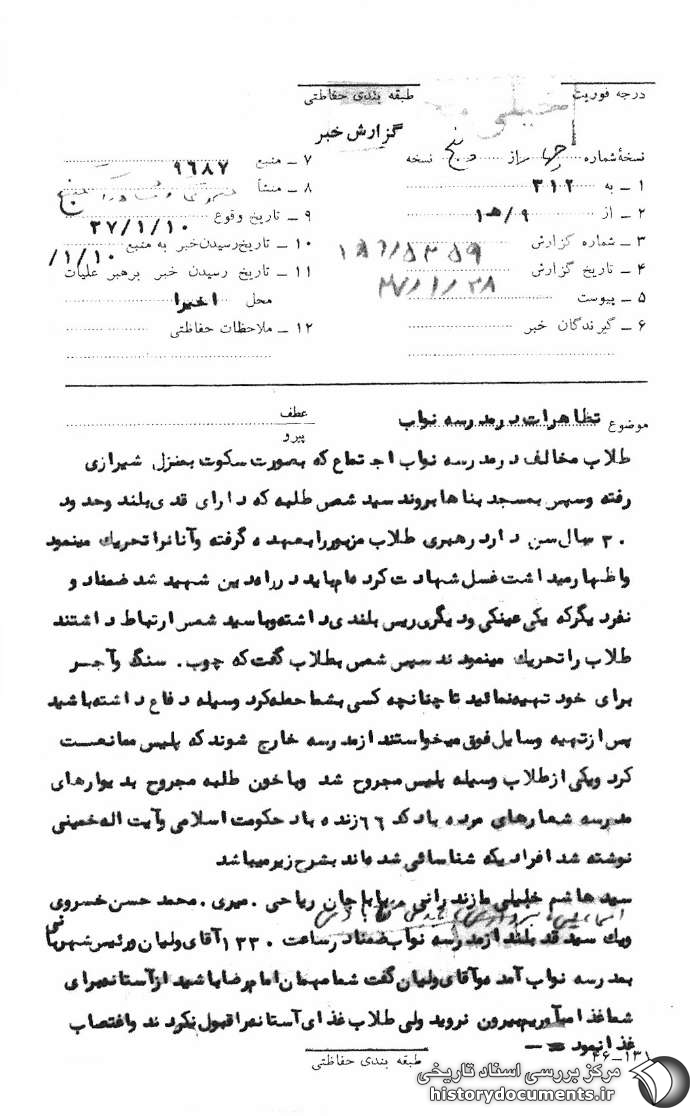 درجه فوریت
طبقه بندی حفاظتی
خیلی
گزارش خبر
نسخهٔ شماره چهار از پنج نسخه
۱ ــ به ۳۱۲
۲ ــ از ۹/هـ۱
۳ ــ شماره گزارش
۴ ــ تاریخ گزارش ۳۷/۱/۲۸
۵ ــ پیوست
۶ ــ گیرندگان خبر
۷ ــ منبع ۹۶۸۷
۸ ــ منشأ
۹ ــ تاریخ وقوع ۳۷/۱/۱۰
۱۰ ــ تاریخ رسیدن خبر به منبع ۱/۱۰/
۱۱ ــ تاریخ رسیدن خبر برهبر عملیات
محل اخیرا
۱۲ ــ ملاحظات حفاظتی
موضوع تظاهرات در مدرسه نواب
عطف
پیرو
طلاب مخالف در مدرسه نواب اجتماع که بصورت سکوت بمنزل شیرازی
رفته وسپس بمسجد بناها بروند سید شمس طلبه که دارای قدی بلند وحدود
۳۰ سال سن دارد رهبری طلاب مزبور را بعهده گرفته وآنانرا تحریك مینمود
واظهار میداشت غسل شهادت کرده ام باید در راه دین شهید شد ضمنا دو
نفر دیگر که یکی عینکی ودیگری ریس بلندی داشته وبا سید شمس ارتباط داشتند
طلاب را تحریك مینمودند سپس شمس بطلاب گفت که چوب . سنگ وآجر
برای خود تهیه نمائید تا چنانچه کسی بشما حمله کرد وسیله دفاع داشته باشید
پس از تهیه وسایل فوق میخواستند از مدرسه خارج شوند که پلیس ممانعت
کرد ویکی از طلاب وسیله پلیس مجروح شد وبا خون طلبه مجروح بدیوارهای
مدرسه شعارهای مرده باد کد ۶۶ زنده باد حکومت اسلامی وآیت اله خمینی
نوشته شد افرادیکه شناسائی شده اند بشرح زیر میباشد
سید هاشم خلیلی مازندرانی باباجان ریاحی . میری . محمد حسن خسروی
ویك سید قد بلند از مدرسه نواب ضمنا در ساعت ۱۳۳۰ آقای ولیان ورئیس شهربانی
بمدرسه نواب آمده وآقای ولیان گفت شما مهمان امام رضا باشید از آستانه برای
شما غذا میآوریم بیرون نروید ولی طلاب غذای آستانه را قبول نکردند واعتصاب
غذا نمود
طبقه بندی حفاظتی
۴۶-۱۳۱
مرکز بررسی اسناد تاریخی
historydocuments.ir